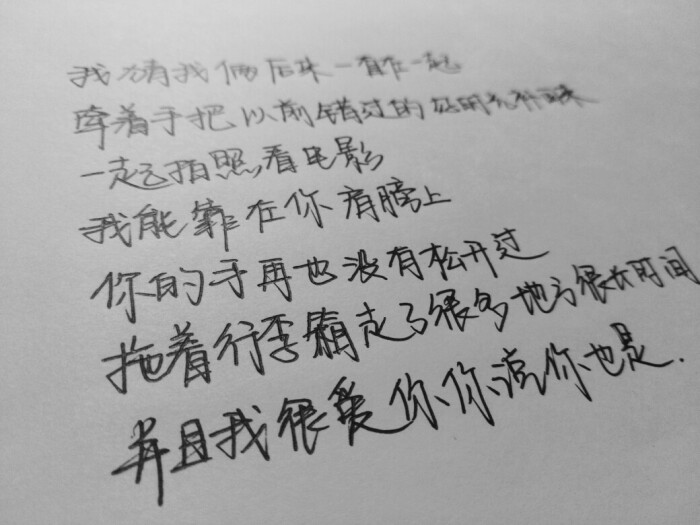 我 我俩后来一直在一起
牵着手把以前错过的 都补回来
一起去拍照看电影
我能靠在你肩膀上
你的手再也没有松开过
拖着行李箱走了很多地方很长时间
并且我很爱你你说你也是.